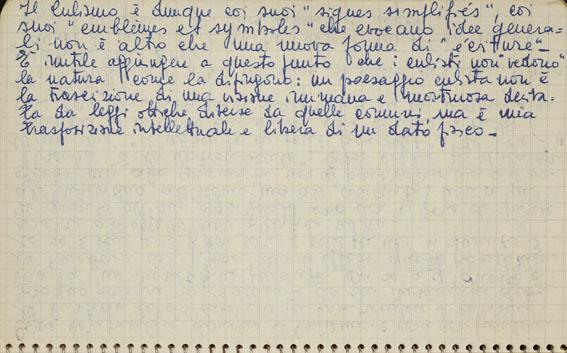 Il cubismo è dunque coi suoi "signes simplifiés", coi
suoi "emblèmes et symboles" che evocano idee genera-
li non è altro che una nuova forma di "écriture" -
È inutile aggiungere a questo punto che i cubisti non vedono
la natura come la dipingono: un paesaggio cubista non è
la trascrizione di una visione inumana e mostruosa detta-
ta da leggi ottiche diverse da quelle comuni, ma è una
trasposizione intellettuale e libera di un dato fisico -